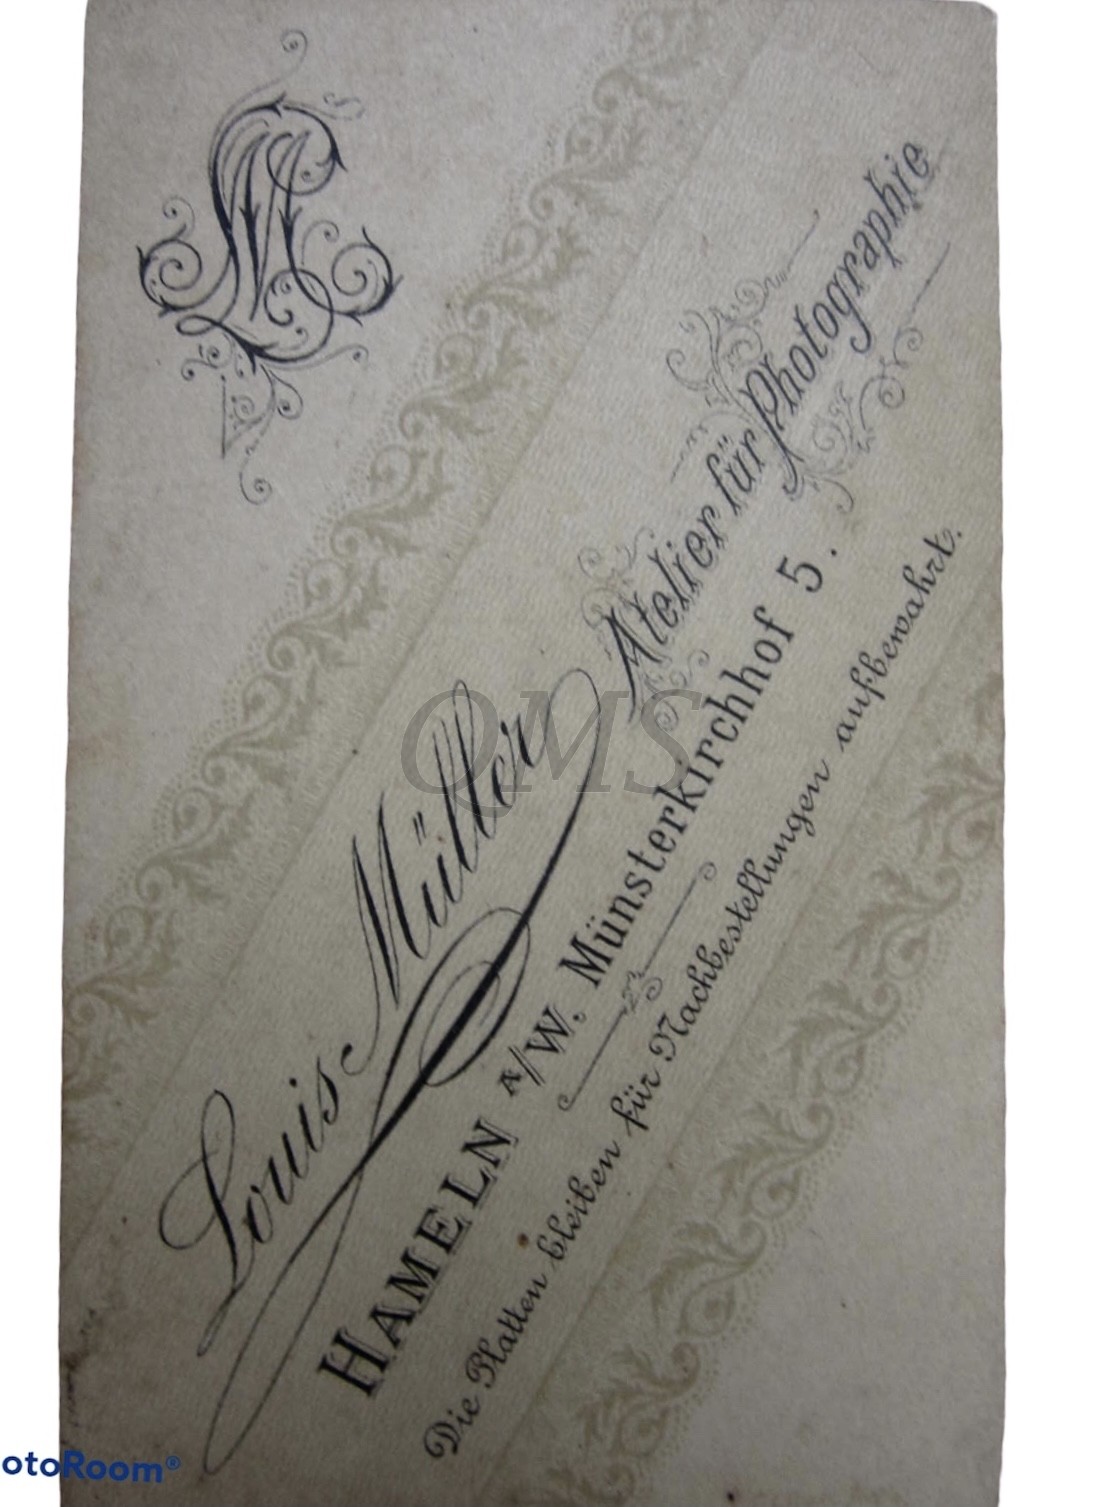 LM
Louis Müller
Atelier für Photographie
HAMELN A/W. Münsterkirchhof 5.
Die Platten bleiben für Nachbestellungen aufbewahrt.
QMS
otoRoom®